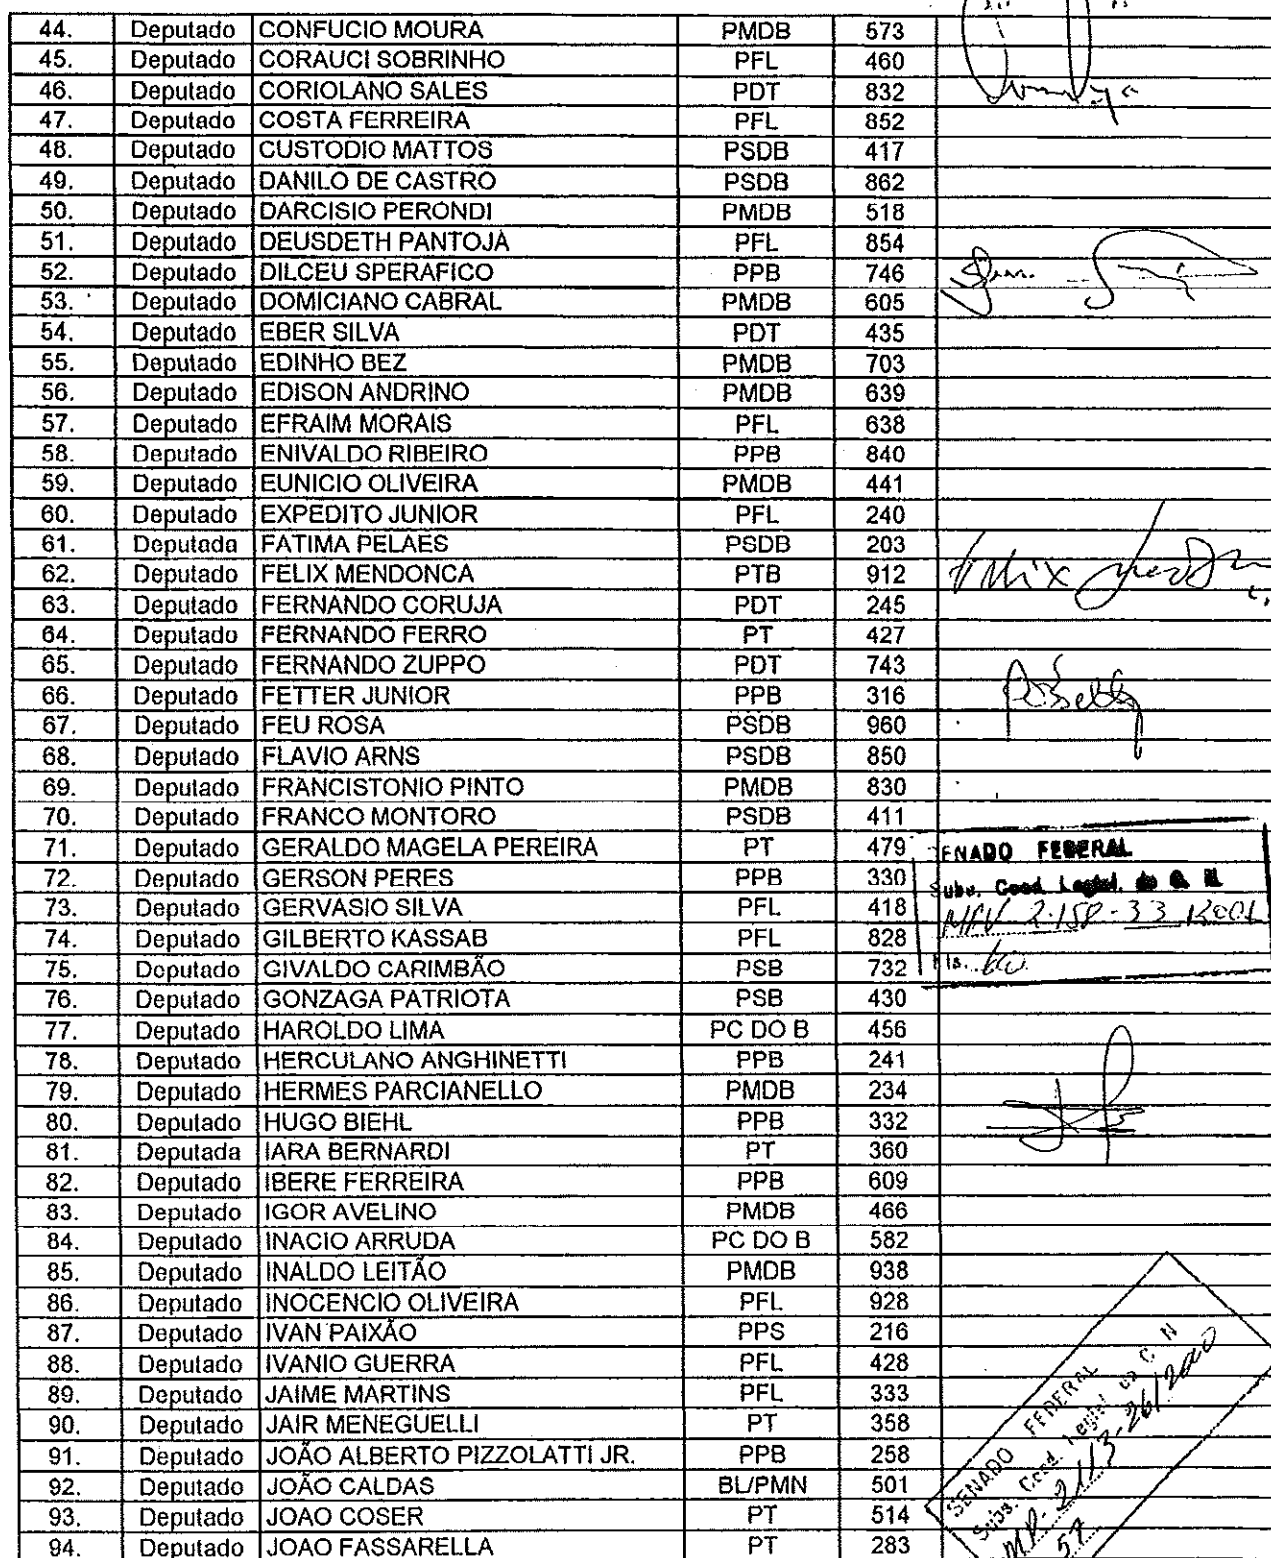 44. Deputado CONFUCIO MOURA PMDB 573
45. Deputado CORAUCI SOBRINHO PFL 460
46. Deputado CORIOLANO SALES PDT 832
47. Deputado COSTA FERREIRA PFL 852
48. Deputado CUSTODIO MATTOS PSDB 417
49. Deputado DANILO DE CASTRO PSDB 862
50. Deputado DARCISIO PERONDI PMDB 518
51. Deputado DEUSDETH PANTOJA PFL 854
52. Deputado DILCEU SPERAFICO PPB 746
53. Deputado DOMICIANO CABRAL PMDB 605
54. Deputado EBER SILVA PDT 435
55. Deputado EDINHO BEZ PMDB 703
56. Deputado EDISON ANDRINO PMDB 639
57. Deputado EFRAIM MORAIS PFL 638
58. Deputado ENIVALDO RIBEIRO PPB 840
59. Deputado EUNICIO OLIVEIRA PMDB 441
60. Deputado EXPEDITO JUNIOR PFL 240
61. Deputada FATIMA PELAES PSDB 203
62. Deputado FELIX MENDONCA PTB 912
63. Deputado FERNANDO CORUJA PDT 245
64. Deputado FERNANDO FERRO PT 427
65. Deputado FERNANDO ZUPPO PDT 743
66. Deputado FETTER JUNIOR PPB 316
67. Deputado FEU ROSA PSDB 960
68. Deputado FLAVIO ARNS PSDB 850
69. Deputado FRANCISTONIO PINTO PMDB 830
70. Deputado FRANCO MONTORO PSDB 411
71. Deputado GERALDO MAGELA PEREIRA PT 479
72. Deputado GERSON PERES PPB 330
73. Deputado GERVASIO SILVA PFL 418
74. Deputado GILBERTO KASSAB PFL 828
75. Deputado GIVALDO CARIMBÃO PSB 732
76. Deputado GONZAGA PATRIOTA PSB 430
77. Deputado HAROLDO LIMA PC DO B 456
78. Deputado HERCULANO ANGHINETTI PPB 241
79. Deputado HERMES PARCIANELLO PMDB 234
80. Deputado HUGO BIEHL PPB 332
81. Deputada IARA BERNARDI PT 360
82. Deputado IBERE FERREIRA PPB 609
83. Deputado IGOR AVELINO PMDB 466
84. Deputado INACIO ARRUDA PC DO B 582
85. Deputado INALDO LEITÃO PMDB 938
86. Deputado INOCENCIO OLIVEIRA PFL 928
87. Deputado IVAN PAIXÃO PPS 216
88. Deputado IVANIO GUERRA PFL 428
89. Deputado JAIME MARTINS PFL 333
90. Deputado JAIR MENEGUELLI PT 358
91. Deputado JOÃO ALBERTO PIZZOLATTI JR. PPB 258
92. Deputado JOÃO CALDAS BL/PMN 501
93. Deputado JOAO COSER PT 514
94. Deputado JOAO FASSARELLA PT 283
Felix
SENADO FEDERAL
Subs. Coord. Legisl. do C. N.
SENADO FEDERAL
Subs. Coord. Legisl. do C N
57